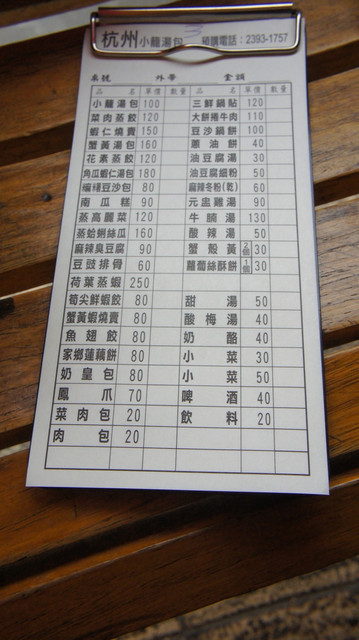 杭州小籠湯包 預購電話:2393-1757
桌號 外帶 金額
品名 單價 數量 品名 單價 數量
小籠湯包 100 三鮮鍋貼 120
菜肉蒸餃 120 大餅捲牛肉 110
蝦仁燒賣 150 豆沙鍋餅 100
蟹黃湯包 160 蔥油餅 40
花素蒸餃 120 油豆腐湯 30
角瓜蝦仁湯包 180 油豆腐細粉 50
豆沙包 80 麻辣冬粉(乾) 60
南瓜糕 90 元盅雞湯 90
蒸高麗菜 120 牛腩湯 130
蒸蛤蜊絲瓜 160 酸辣湯 50
麻辣臭豆腐 90 蟹殼黃 2個 30
豆豉排骨 60 蘿蔔絲酥餅 1個 30
荷葉蒸蝦 250
筍尖鮮蝦餃 80 甜湯 50
蟹黃蝦燒賣 80 酸梅湯 40
魚翅餃 80 奶酪 40
家鄉蓮藕餅 80 小菜 30
奶皇包 80 小菜 50
鳳爪 70 啤酒 40
菜肉包 20 飲料 20
肉包 20